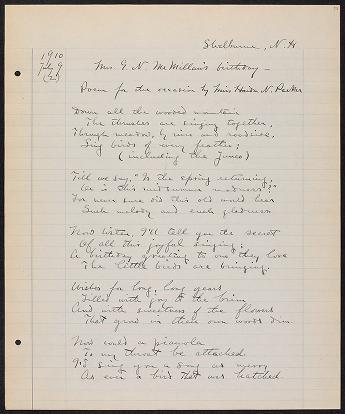 Shelburne, N.H
1910
July 9
Mrs. G. N. McMillan's birthday —
Poem for the occasion by Miss N. Parker
Down all the wooded mountain
The thrushes are singing together,
Through meadow, by river and roadside,
Sing birds of every feather;
(including the Junco)
Till we say, "Is the spring returning,
Or is this midsummer madness?"
For never sure did this old world hear
Such melody and such gladness
Now listen, I'll tell you the secret
Of all this joyful singing:
A birthday greeting to one they love
The little birds are bringing.
Wishes for long, long years
Filled with joy to the brim
And with sweetness of the flowers
That grow in their own woods dim.
Now could a pianola
to my throat be attached
I'd sing you a song as merry
As ever a bird that was hatched